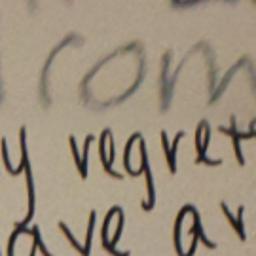 rom
y regret
ave ar